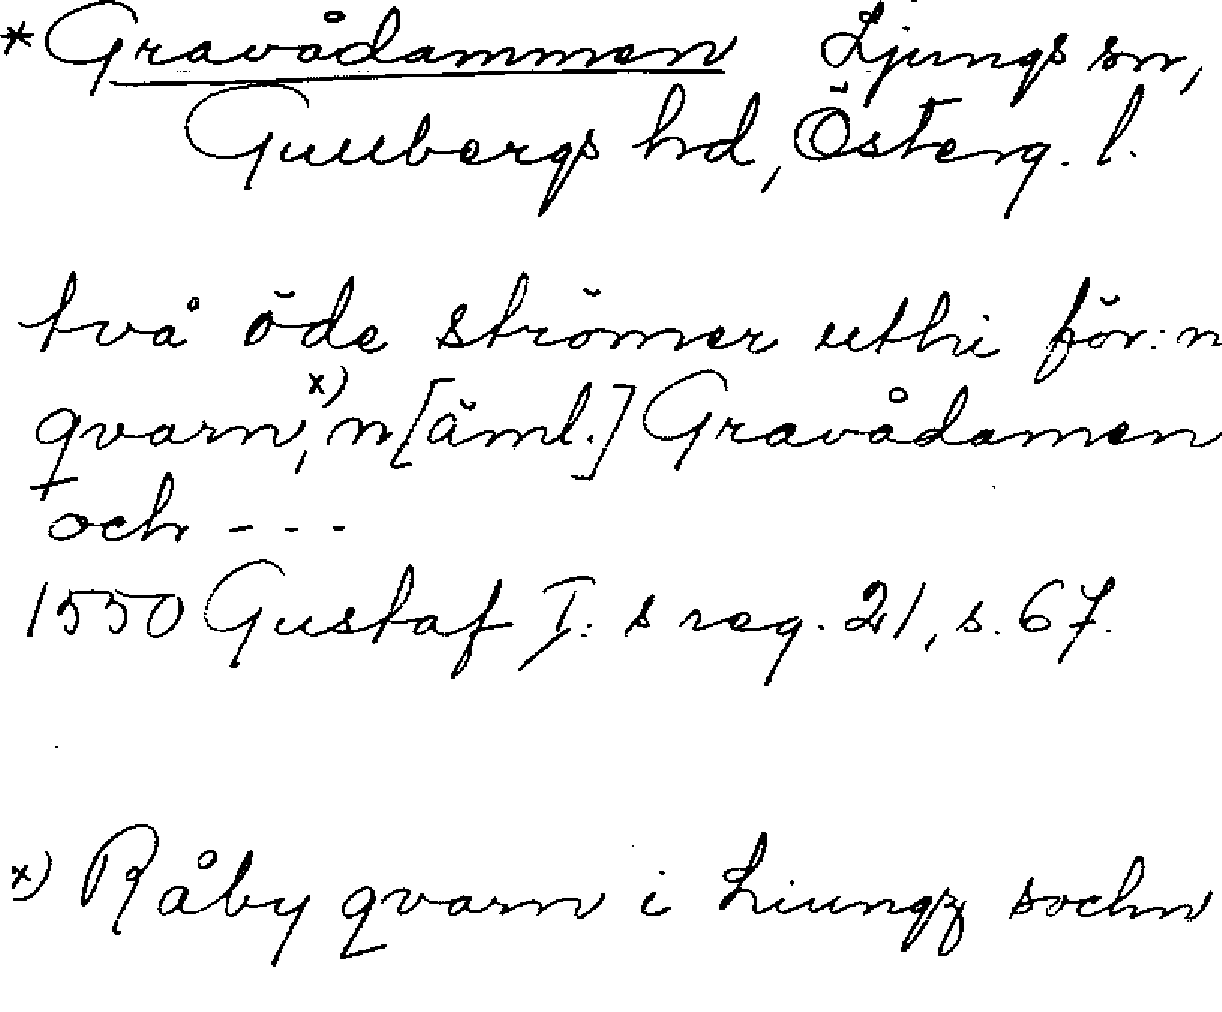 *Gravådammen Ljungs sn,
Gullbergs hd, Österg. l.
två öde strömer uthi för:n
qvarn,x) n[äml.] Gravådamen
och - - -
1550 Gustaf I:s reg. 21, s. 67.
x) Råby qvarn i Liungz sochn